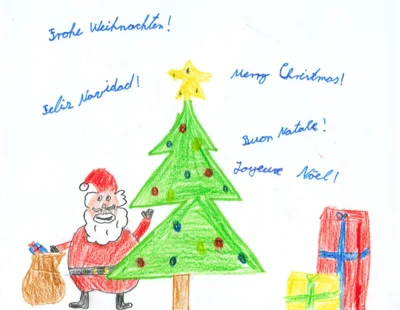 Frohe Weihnachten!
Feliz Navidad!
Merry Christmas!
Buon Natale!
Joyeuse Nöel!